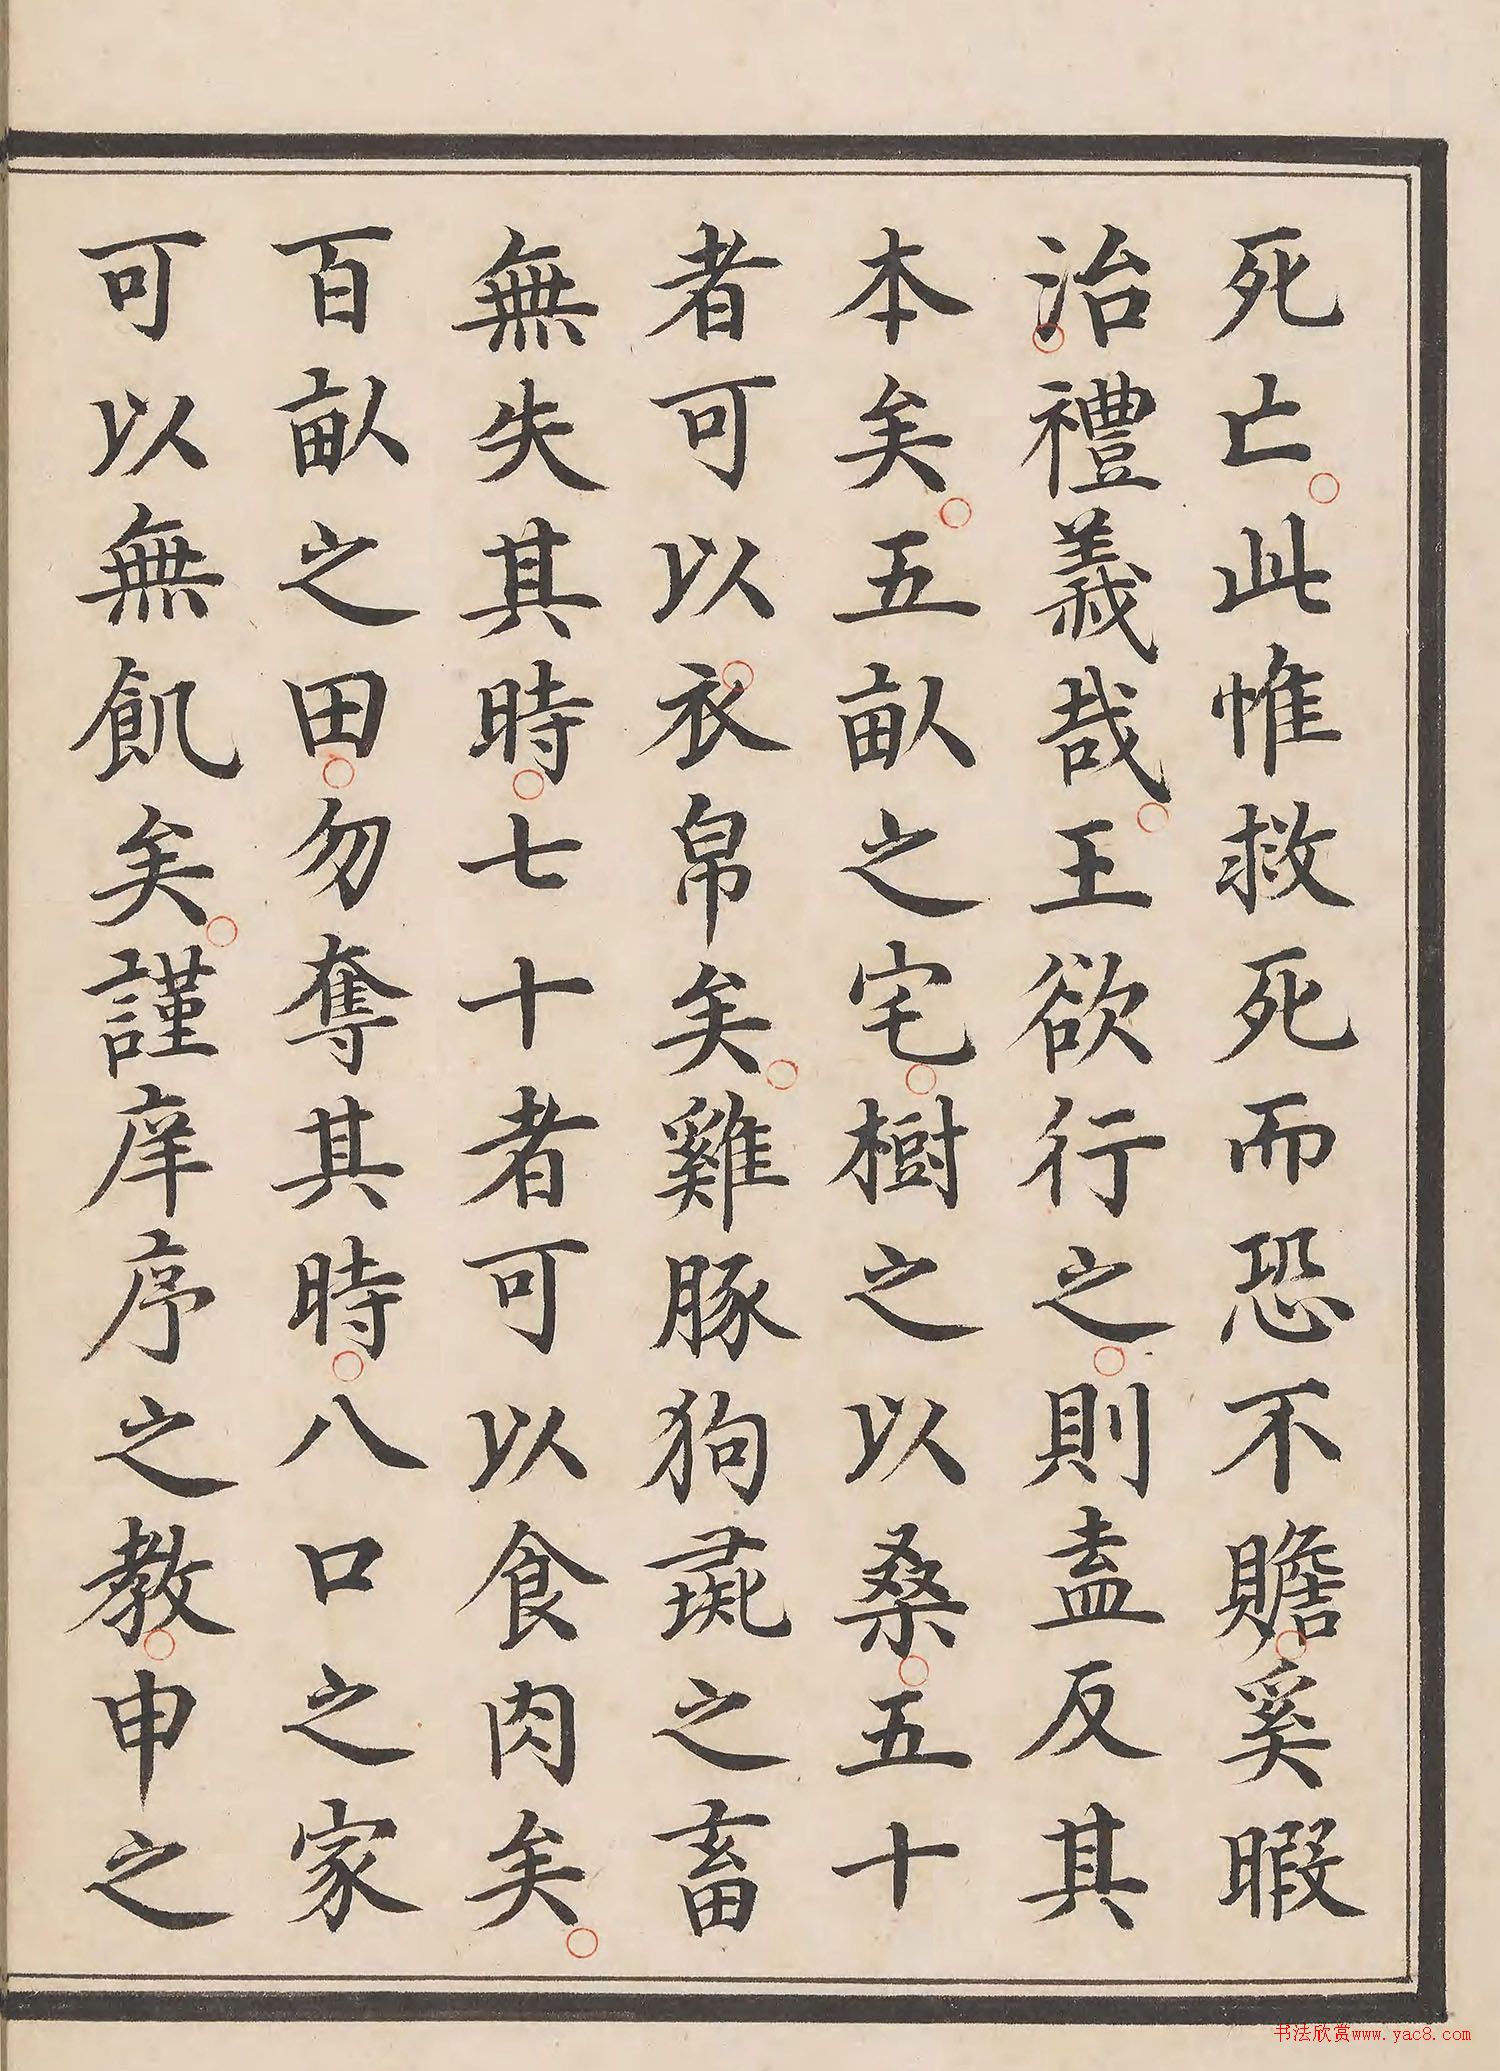 死亡此惟救死而恐不贍奚暇
治禮義哉王欲行之則盍反其
本矣五畝之宅樹之以桑五十
者可以衣帛矣雞豚狗彘之畜
無失其時七十者可以食肉矣
百畝之田勿奪其時八口之家
可以無飢矣謹庠序之教申之
书法欣赏www.yac8.com